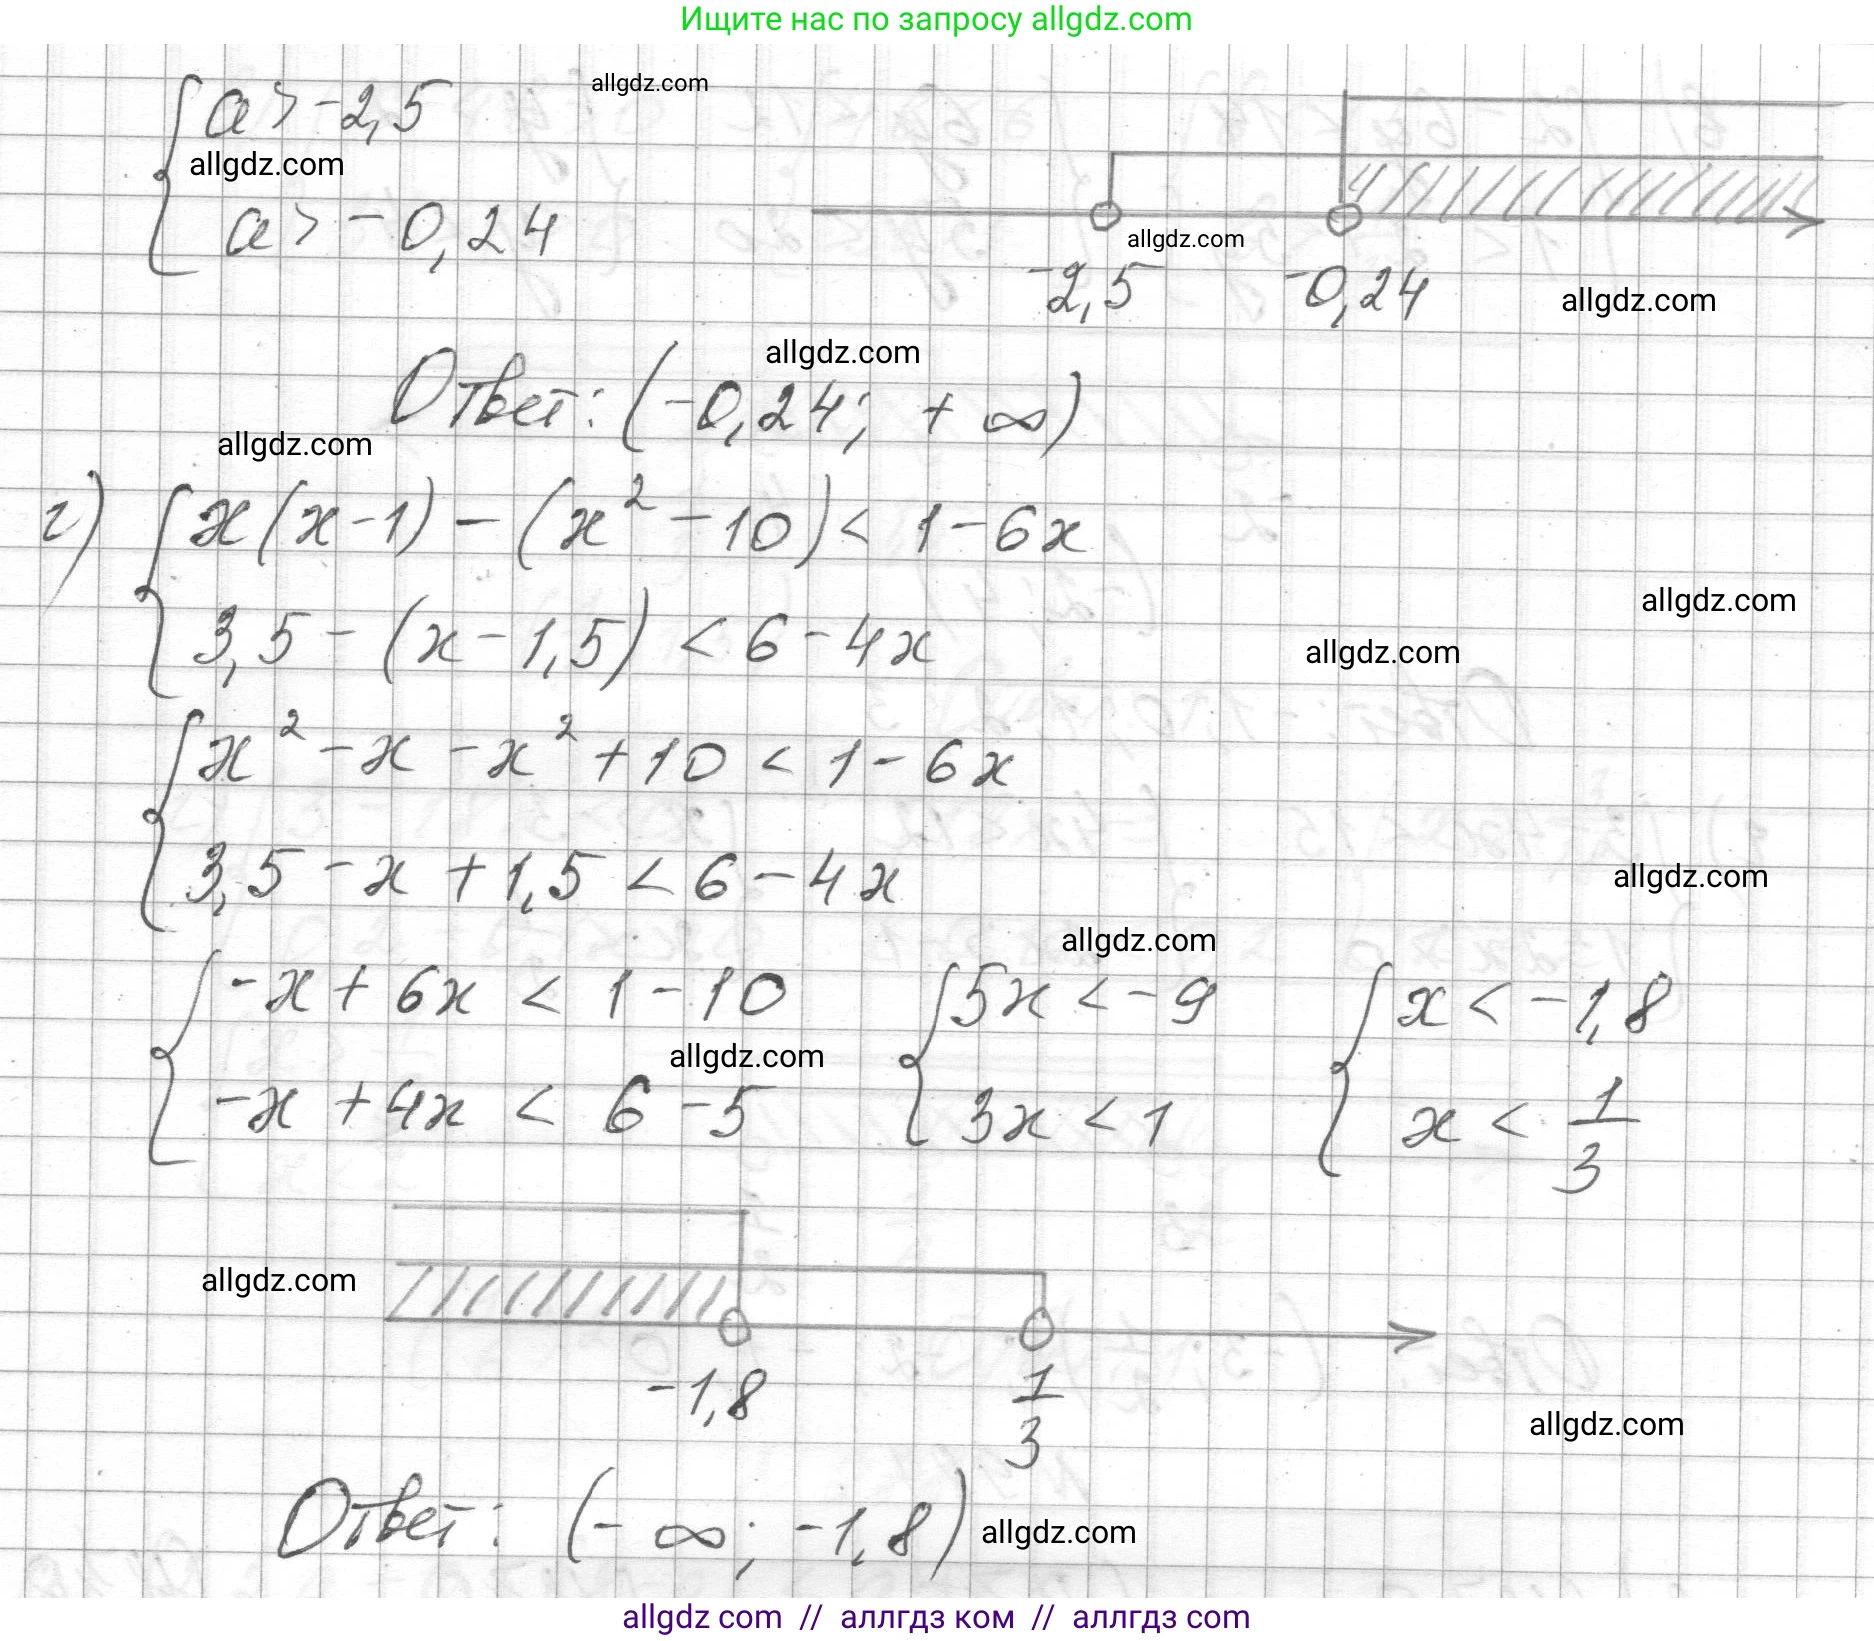 Ищите нас по запросу allgdz.com
allgdz.com
a > -2,5
allgdz.com
a > -0,24
allgdz.com
-2,5 -0,24
allgdz.com
allgdz.com
Ответ: (-0,24; +∞)
allgdz.com
г) x(x-1) - (x² - 10) < 1 - 6x
allgdz.com
3,5 - (x - 1,5) < 6 - 4x
allgdz.com
x² - x - x² + 10 < 1 - 6x
3,5 - x + 1,5 < 6 - 4x
allgdz.com
allgdz.com
-x + 6x < 1 - 10 5x < -9 x < -1,8
allgdz.com
-x + 4x < 6 - 5 3x < 1 x < 1/3
allgdz.com
-1,8 1/3
allgdz.com
Ответ: (-∞; -1,8)
allgdz.com
allgdz com // аллгдз ком // аллгдз com